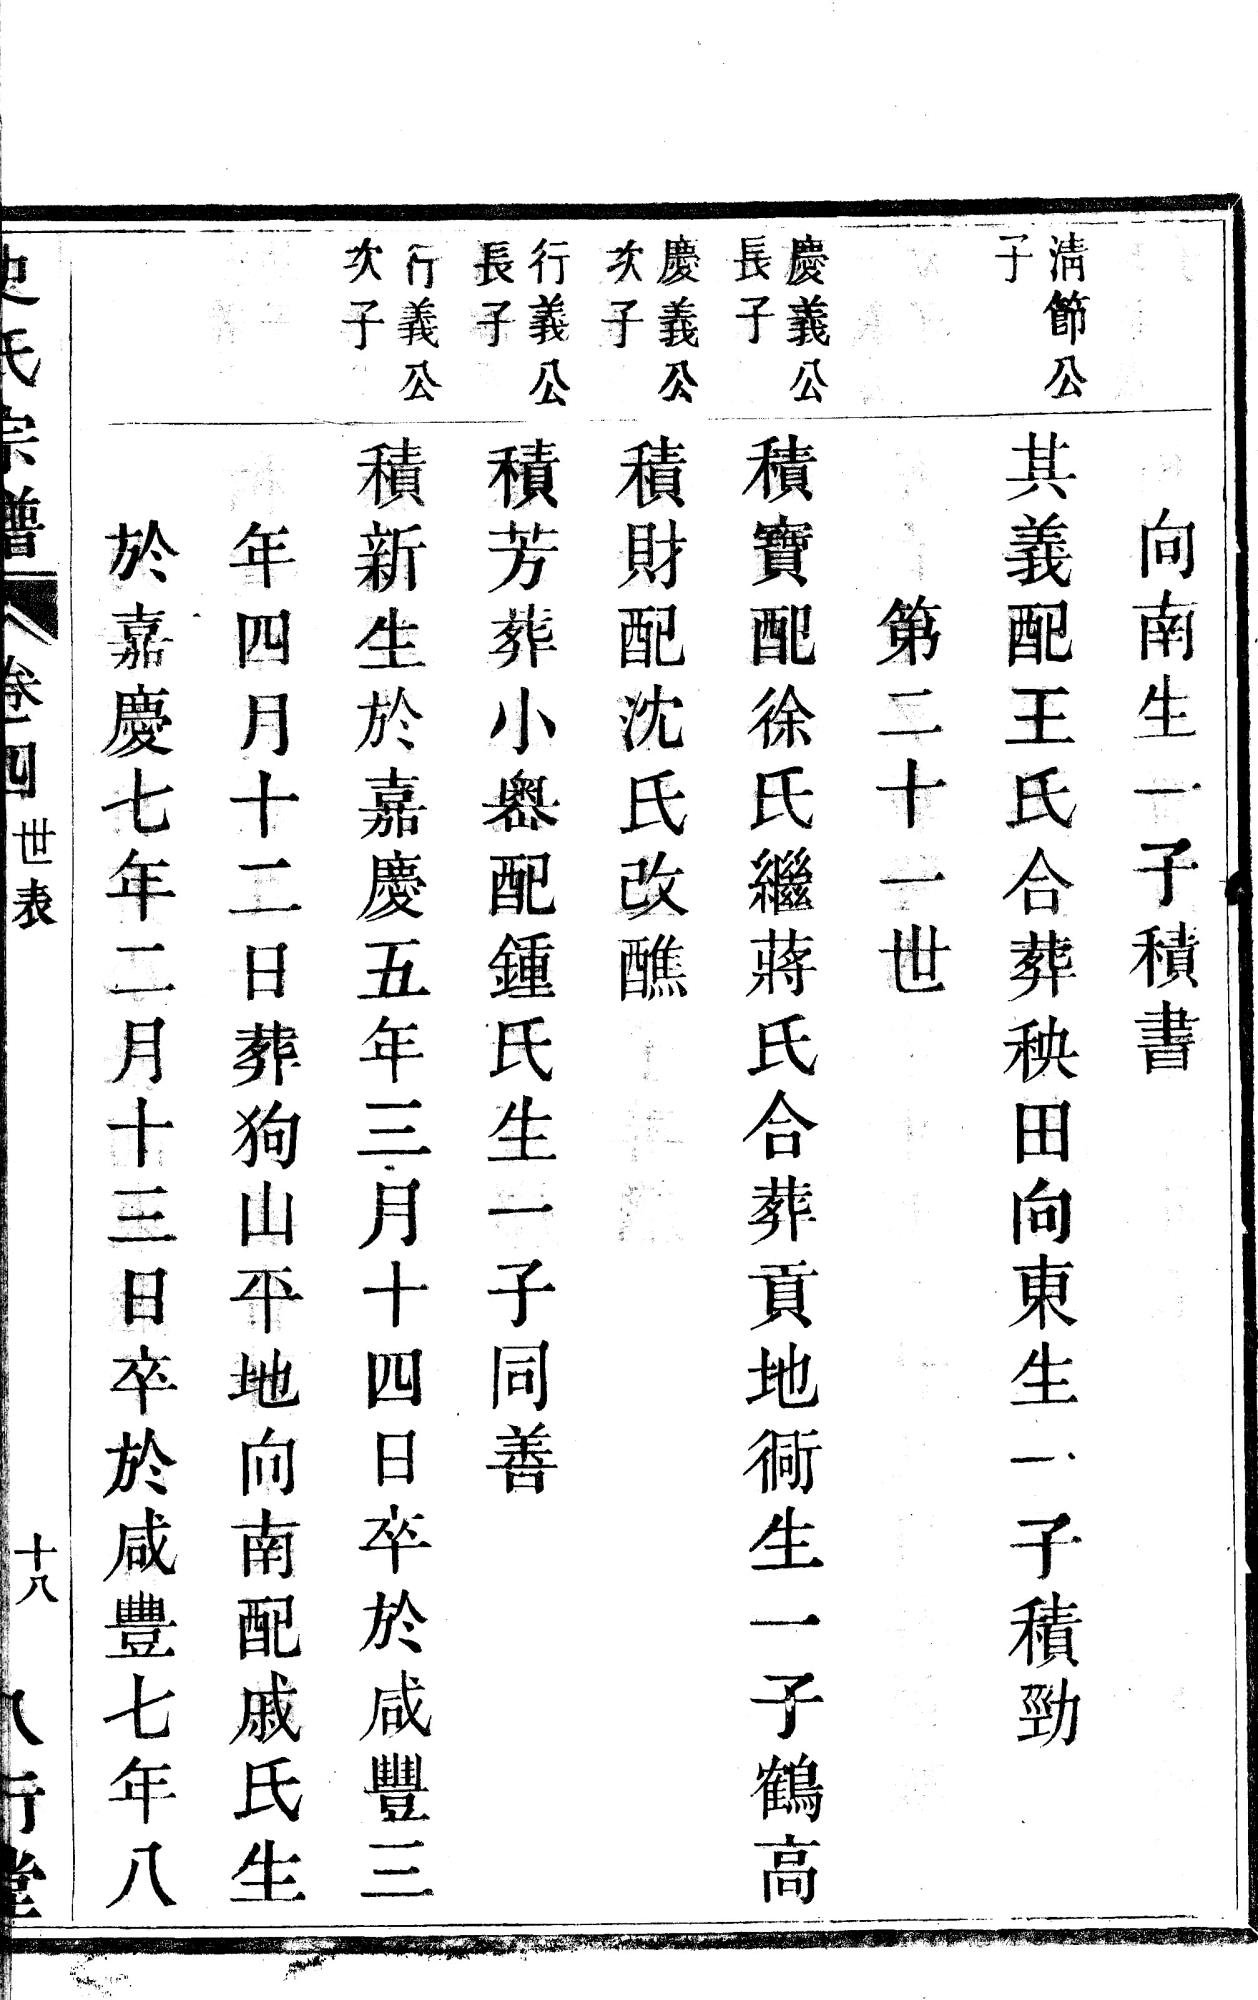 向南生一子積書
清節公
子
其義配王氏合葬秧田向東生一子積勁
第二十一世
慶義公
長子
積寶配徐氏繼蔣氏合葬貢地衕生一子鶴高
慶義公
次子
積財配沈氏改醮
行義公
長子
積芳葬小嶴配鍾氏生一子同善
行義公
次子
積新生於嘉慶五年三月十四日卒於咸豐三
年四月十二日葬狗山平地向南配戚氏生
於嘉慶七年二月十三日卒於咸豐七年八
史氏宗譜
卷四
世表
十八
八行堂